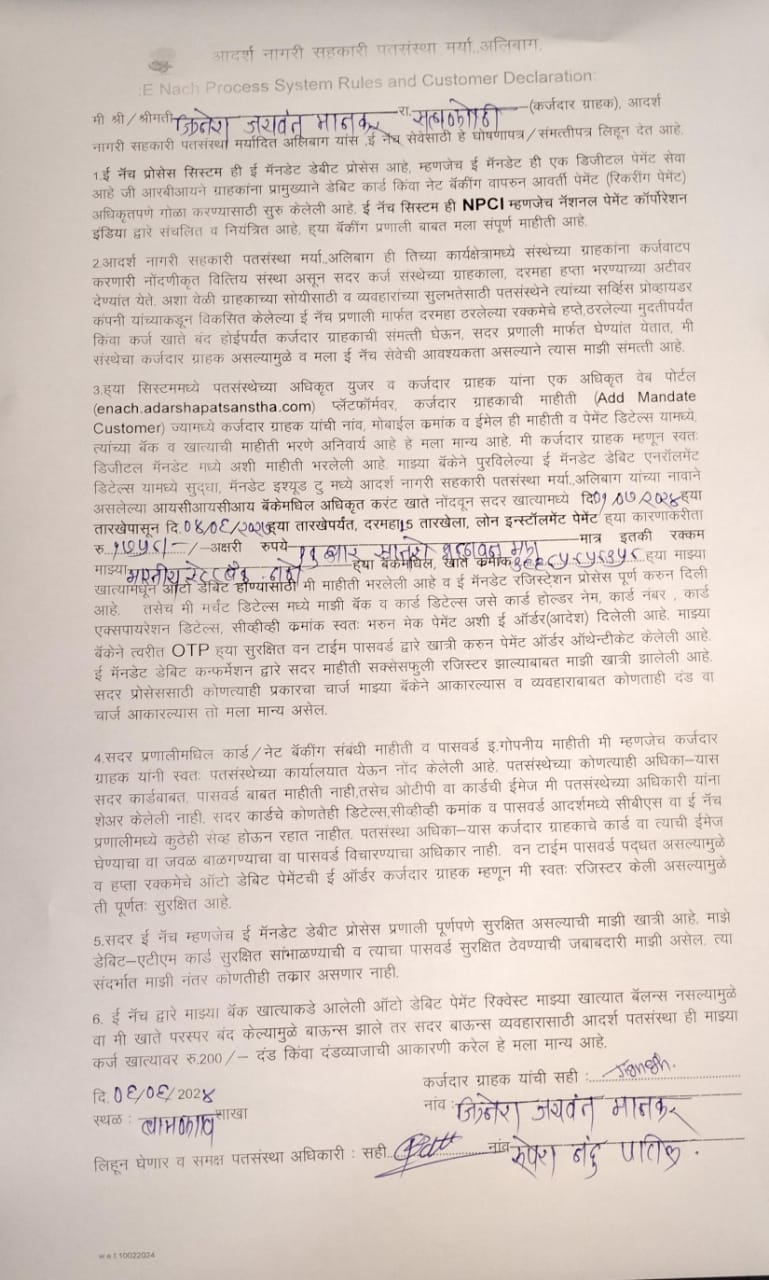 आदर्श नागरी सहकारी पतसंस्था मर्या..अलिबाग.
:E Nach Process System Rules and Customer Declaration:
मी श्री/श्रीमती जितेश जयवंत मानकर रा. (कर्जदार ग्राहक), आदर्श
नागरी सहकारी पतसंस्था मर्यादित अलिबाग यांस ,ई नॅच सेवेसाठी हे घोषणापत्र/संमत्तीपत्र लिहून देत आहे.
1.ई नॅच प्रोसेस सिस्टिम ही ई मॅनडेट डेबीट प्रोसेस आहे, म्हणजेच ई मॅनडेट ही एक डिजिटल पेमेंट सेवा
आहे जी आरबीआयने ग्राहकांना प्रामुख्याने डेबिट कार्ड किंवा नेट बॅकींग वापरुन आवर्ती पेमेंट (रिकरींग पेमेंट)
अधिकृतपणे गोळा करण्यासाठी सुरु केलेली आहे. ई नॅच सिस्टिम ही NPCI म्हणजेच नॅशनल पेमेंट कॉर्पोरेशन
इंडिया द्वारे संचलित व नियंत्रित आहे, ह्या बॅकींग प्रणाली बाबत मला संपूर्ण माहीती आहे.
2.आदर्श नागरी सहकारी पतसंस्था मर्या..अलिबाग ही तिच्या कार्यक्षेत्रामध्ये संस्थेच्या ग्राहकांना कर्जवाटप
करणारी नोंदणीकृत वित्तिय संस्था असून सदर कर्ज संस्थेच्या ग्राहकाला, दरमहा हप्ता भरण्याच्या अटीवर
देण्यांत येते. अशा वेळी ग्राहकाच्या सोयीसाठी व व्यवहारांच्या सुलभतेसाठी पतसंस्थेने त्यांच्या सर्व्हिस प्रोव्हायडर
कंपनी यांच्याकडून विकसित केलेल्या ई नॅच प्रणाली मार्फत दरमहा ठरलेल्या रक्कमेचे हप्ते,ठरलेल्या मुदतीपर्यंत
किंवा कर्ज खाते बंद होईपर्यंत कर्जदार ग्राहकाची संमत्ती घेऊन, सदर प्रणाली मार्फत घेण्यांत येतात, मी
संस्थेचा कर्जदार ग्राहक असल्यामुळे व मला ई नॅच सेवेची आवश्यकता असल्याने त्यास माझी संमत्ती आहे.
3.ह्या सिस्टिममध्ये पतसंस्थेच्या अधिकृत युजर व कर्जदार ग्राहक यांना एक अधिकृत वेब पोर्टल
(enach.adarshapatsanstha.com) प्लॅटफॉर्मवर, कर्जदार ग्राहकाची माहीती (Add Mandate
Customer) ज्यामध्ये कर्जदार ग्राहक यांची नांव, मोबाईल कमांक व ईमेल ही माहीती व पेमेंट डिटेल्स यामध्ये,
त्यांच्या बॅक व खात्याची माहीती भरणे अनिवार्य आहे हे मला मान्य आहे. मी कर्जदार ग्राहक म्हणून स्वतः
डिजीटल मॅनडेट मध्ये अशी माहीती भरलेली आहे. माझ्या बॅकेने पुरविलेल्या ई मॅनडेट डेबिट एनरॉलमेंट
डिटेल्स यामध्ये सुद्धा, मॅनडेट इश्यूड टु मध्ये आदर्श नागरी सहकारी पतसंस्था मर्या..अलिबाग यांच्या नावाने
असलेल्या आयसीआयसीआय बॅकेमधिल अधिकृत करंट खाते नोंदवून सदर खात्यामध्ये दि०१/०७/२०२४ह्या
तारखेपासून दि.०४/०६/२०२७ह्या तारखेपर्यंत, दरमहा15 तारखेला, लोन इन्स्टॉलमेंट पेमेंट ह्या कारणाकरीता
रु. /-अक्षरी रुपये मात्र इतकी रक्कम
माझ्या भारतीय स्टेट बँक ह्या बॅकेमधिल, खाते कमांक ह्या माझ्या
खात्यामधून ऑटो डेबिट होण्यासाठी मी माहीती भरलेली आहे व ई मॅनडेट रजिस्टे्शन प्रोसेस पूर्ण करुन दिली
आहे. तसेच मी मर्चंट डिटेल्स मध्ये माझी बॅक व कार्ड डिटेल्स जसे कार्ड होल्डर नेम, कार्ड नंबर , कार्ड
एक्सपायरेशन डिटेल्स, सीव्हीव्ही कमांक स्वतः भरुन मेक पेमेंट अशी ई ऑर्डर(आदेश) दिलेली आहे. माझ्या
बॅकेने त्वरीत OTP ह्या सुरक्षित वन टाईम पासवर्ड द्वारे खात्री करुन पेमेंट ऑर्डर ऑथेन्टीकेट केलेली आहे.
ई मॅनडेट डेबिट कन्फर्मेशन द्वारे सदर माहीती सक्सेसफुली रजिस्टर झाल्याबाबत माझी खात्री झालेली आहे.
सदर प्रोसेससाठी कोणत्याही प्रकारचा चार्ज माझ्या बॅकेने आकारल्यास व व्यवहाराबाबत कोणताही दंड वा
चार्ज आकारल्यास तो मला मान्य असेल.
4.सदर प्रणालीमधिल कार्ड/नेट बॅकींग संबंधी माहीती व पासवर्ड इ.गोपनीय माहीती मी म्हणजेच कर्जदार
ग्राहक यांनी स्वतः पतसंस्थेच्या कार्यालयात येऊन नोंद केलेली आहे. पतसंस्थेच्या कोणत्याही अधिका–यास
सदर कार्डबाबत, पासवर्ड बाबत माहीती नाही,तसेच ओटीपी वा कार्डची ईमेज मी पतसंस्थेच्या अधिकारी यांना
शेअर केलेली नाही. सदर कार्डचे कोणतेही डिटेल्स,सीव्हीव्ही कमांक व पासवर्ड आदर्शमध्ये सीबीएस वा ई नॅच
प्रणालीमध्ये कुठेही सेव्ह होऊन रहात नाहीत. पतसंस्था अधिका–यास कर्जदार ग्राहकाचे कार्ड वा त्याची ईमेज
घेण्याचा वा जवळ बाळगण्याचा वा पासवर्ड विचारण्याचा अधिकार नाही. वन टाईम पासवर्ड पद्धत असल्यामुळे
व हप्ता रक्कमेचे ऑटो डेबिट पेमेंटची ई ऑर्डर कर्जदार ग्राहक म्हणून मी स्वतः रजिस्टर केली असल्यामुळे
ती पूर्णतः सुरक्षित आहे.
5.सदर ई नॅच म्हणजेच ई मॅनडेट डेबीट प्रोसेस प्रणाली पूर्णपणे सुरक्षित असल्याची माझी खात्री आहे. माझे
डेबिट–एटीएम कार्ड सुरक्षित सांभाळण्याची व त्याचा पासवर्ड सुरक्षित ठेवण्याची जबाबदारी माझी असेल. त्या
संदर्भात माझी नंतर कोणतीही तक्रार असणार नाही.
6. ई नॅच द्वारे माझ्या बॅक खात्याकडे आलेली ऑटो डेबिट पेमेंट रिक्वेस्ट माझ्या खात्यात बॅलन्स नसल्यामुळे
वा मी खाते परस्पर बंद केल्यामुळे बाऊन्स झाले तर सदर बाऊन्स व्यवहारासाठी आदर्श पतसंस्था ही माझ्या
कर्ज खात्यावर रु.200/– दंड किंवा दंडव्याजाची आकारणी करेल हे मला मान्य आहे.
दि.०६/०६/202४
कर्जदार ग्राहक यांची सही :
स्थळ : शाखा
नांव : जितेश जयवंत मानकर
लिहून घेणार व समक्ष पतसंस्था अधिकारी : सही. नांव रुपेश नंदु पाटिल.
wef10022024